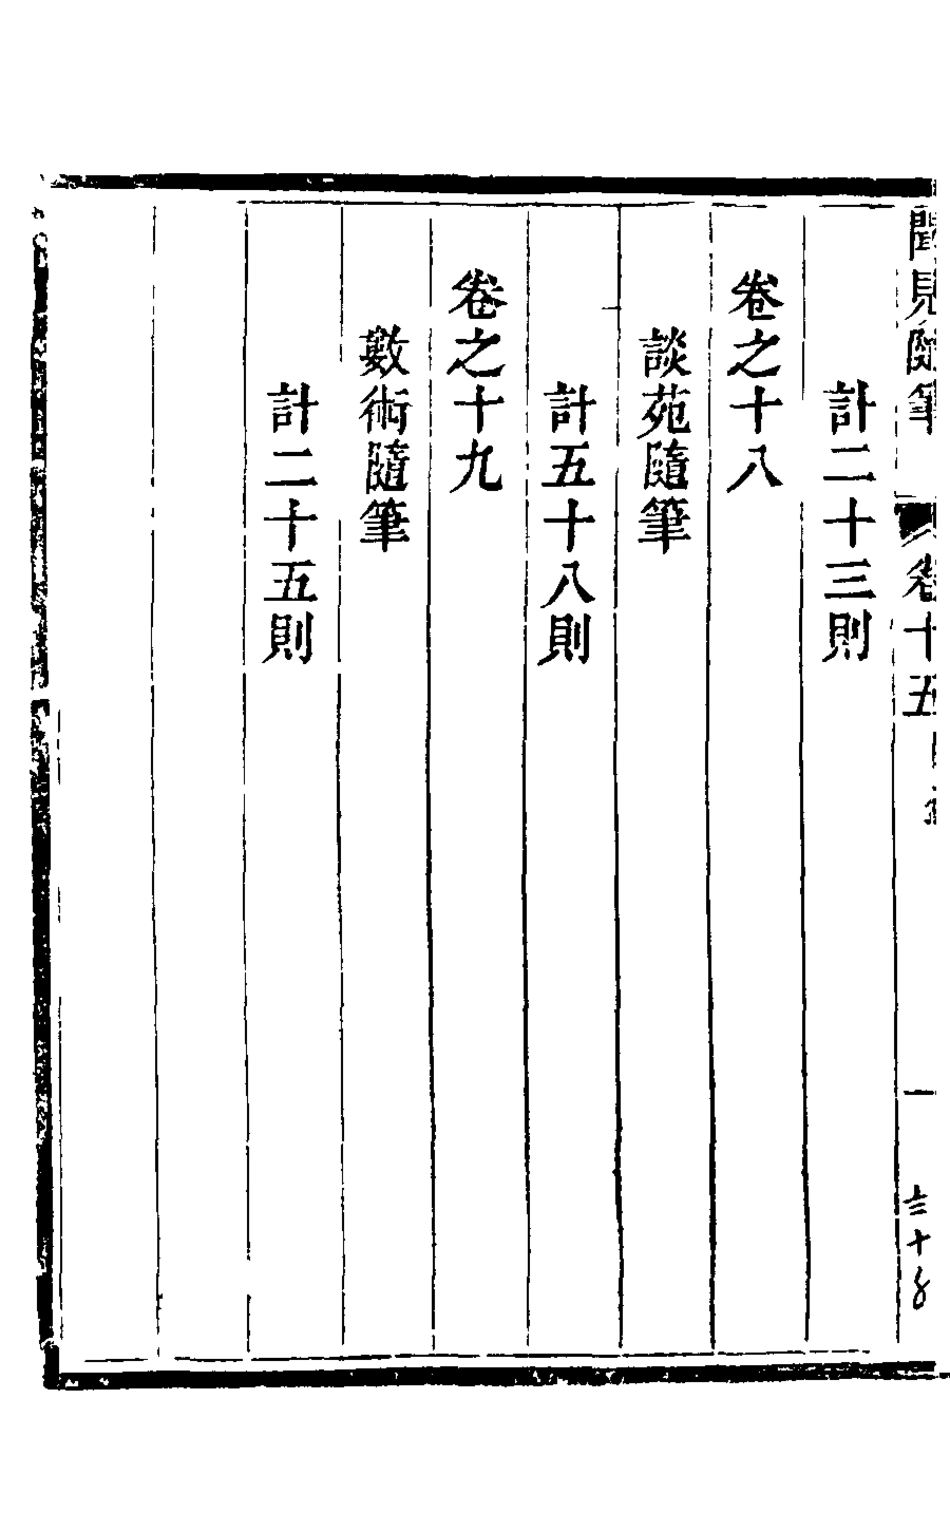 聞見隨筆 卷十五目錄 一
計二十三則
卷之十八
談苑隨筆
計五十八則
卷之十九
數術隨筆
計二十五則